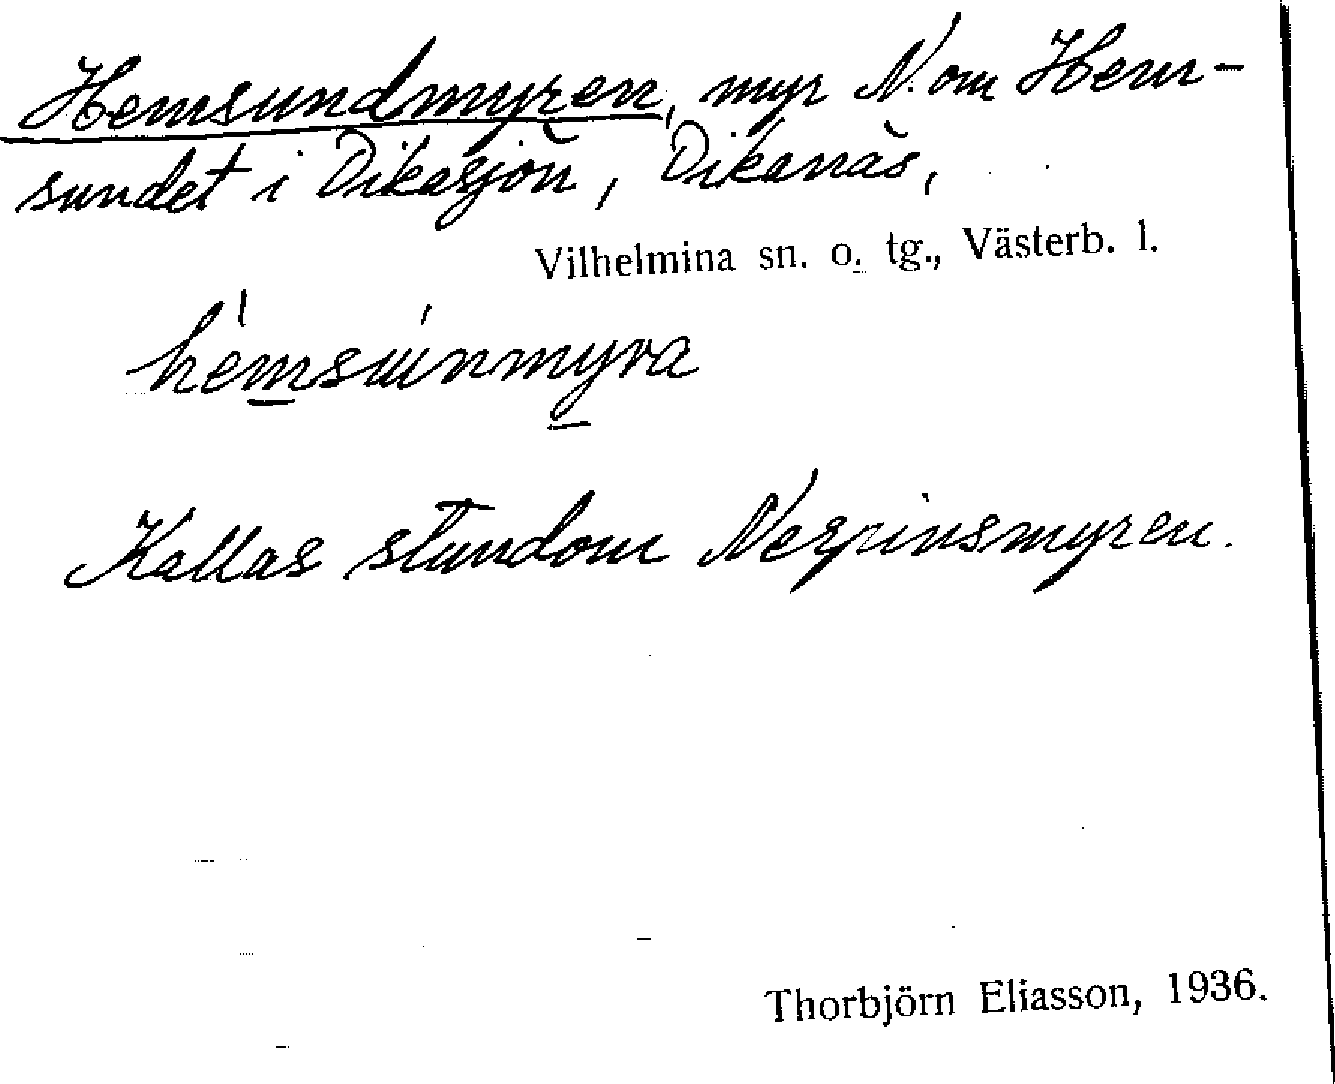 Hemsundmyren, myr N. om Hem-
sundet i Dikasjön, Dikanäs,
Vilhelmina sn. o. tg., Västerb. l.
hemsuinmyra
Kallas stundom Nerpinsmyren.
Thorbjörn Eliasson, 1936.